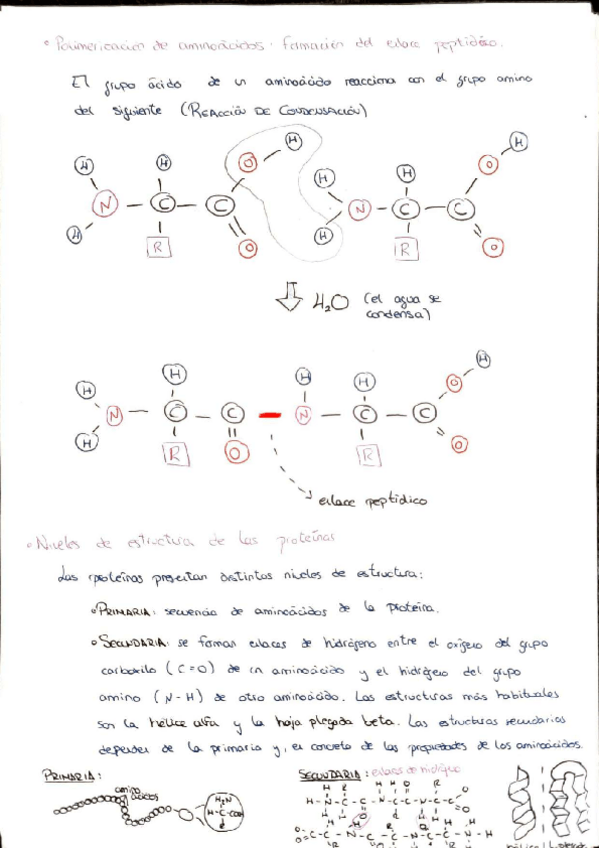 • Polimerización de aminoácidos: formación del enlace peptídico.
El grupo ácido de un aminoácido reacciona con el grupo amino
del siguiente (REACCIÓN DE CONDENSACIÓN)
H H O H H H O H
N C C H N C C
H R O R O
H₂O (el agua se
condensa)
H H H H O H
N C C N C C
H R O R O
enlace peptídico
• Niveles de estructura de las proteínas
Las proteínas presentan distintos niveles de estructura:
• PRIMARIA: secuencia de aminoácidos de la proteína.
• SECUNDARIA: se forman enlaces de hidrógeno entre el oxígeno del grupo
carboxilo (C=O) de un aminoácido y el hidrógeno del grupo
amino (N-H) de otro aminoácido. Las estructuras más habituales
son la hélice alfa y la hoja plegada beta. Las estructuras secundarias
dependen de la primaria y, en concreto de las propiedades de los aminoácidos.
PRIMARIA: SECUNDARIA: enlaces de hidrógeno
amino
ácidos
H₂N
H-C-COOH
R